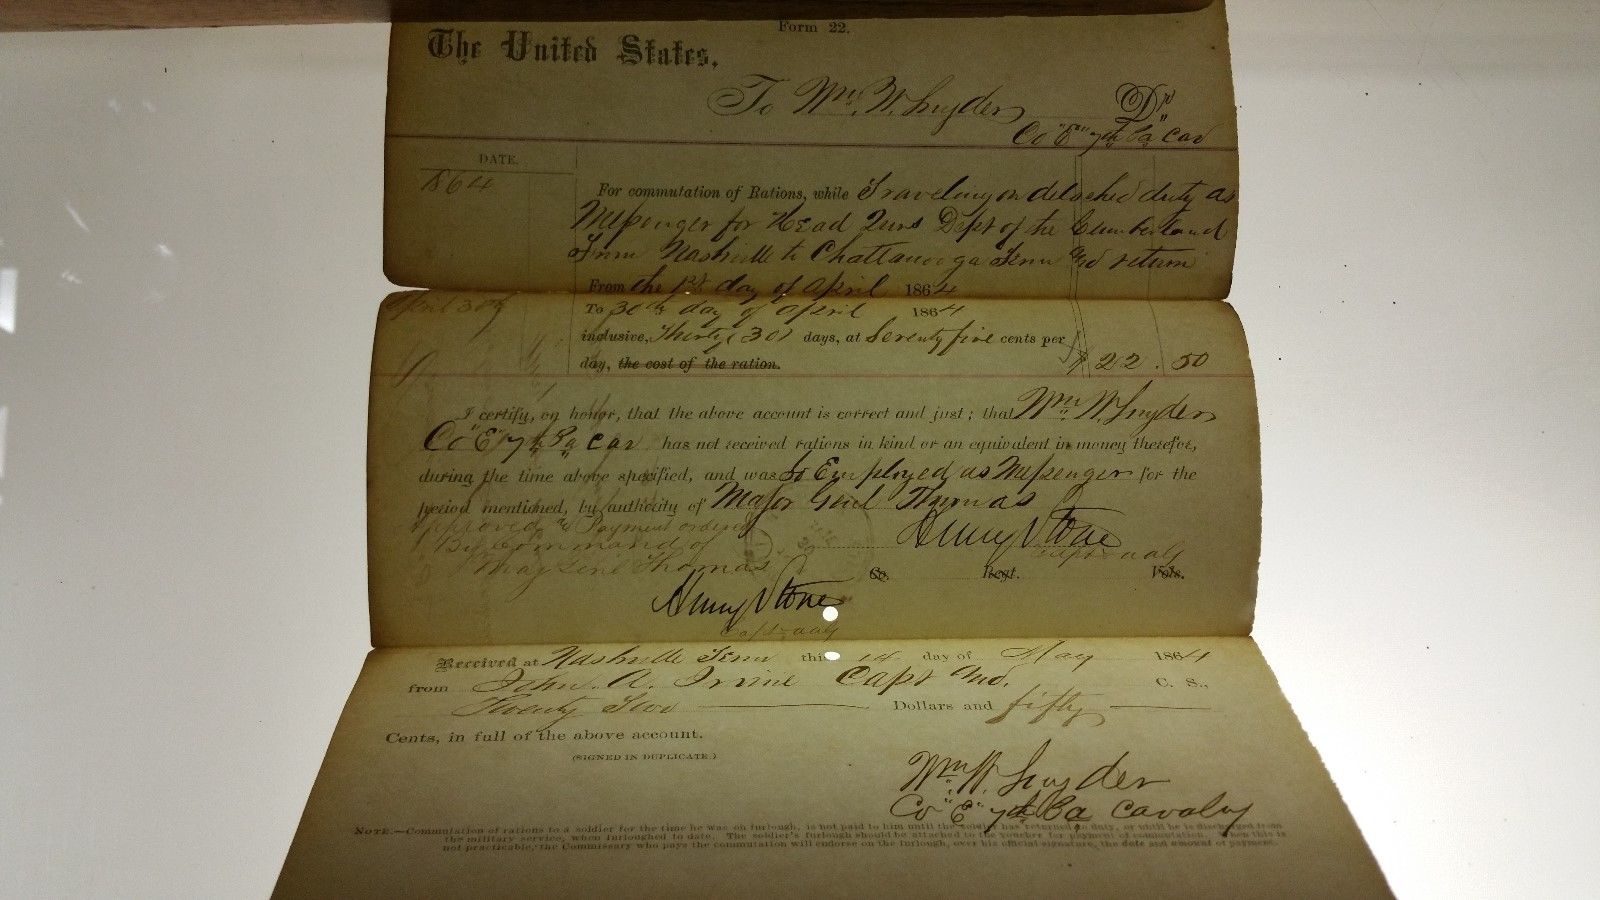 Form 22.
The United States,
To Wm. W. Snyder Dr
Co "E" 7th Pa Cav
DATE.
1864
For commutation of Rations, while Traveling on detached duty as
Messenger for Head Qurs Dept of the Cumberland
From Nashville to Chattanooga Tenn and return
From the 1st day of April 1864
April 30th
To 30th day of April 1864
inclusive, Thirty (30) days, at Seventy five cents per
day, the cost of the ration. $22.50
I certify, on honor, that the above account is correct and just; that Wm W. Snyder
Co "E" 7th Pa Cav has not received rations in kind or an equivalent in money therefor,
during the time above specified, and was so Employed as Messenger for the
period mentioned, by authority of Major Genl Thomas
Approved & Payment ordered
By Command of Henry Stone
Maj Genl Thomas Capt & aag
Co. Regt. Vols.
Henry Stone
Capt & aag
Received at Nashville Tenn this 14 day of May 1864
from John. A. Irvine Capt and. C. S.,
Twenty Two Dollars and fifty
Cents, in full of the above account.
(SIGNED IN DUPLICATE.)
Wm W. Snyder
Co "E" 7th Pa Cavalry
NOTE.—Commutation of rations to a soldier for the time he was on furlough, is not paid to him until the soldier has returned to duty, or until he is discharged from
the military service, when furloughed to date. The soldier's furlough should be attached to the voucher for payment of commutation. When this is
not practicable, the Commissary who pays the commutation will endorse on the furlough, over his official signature, the date and amount of payment.